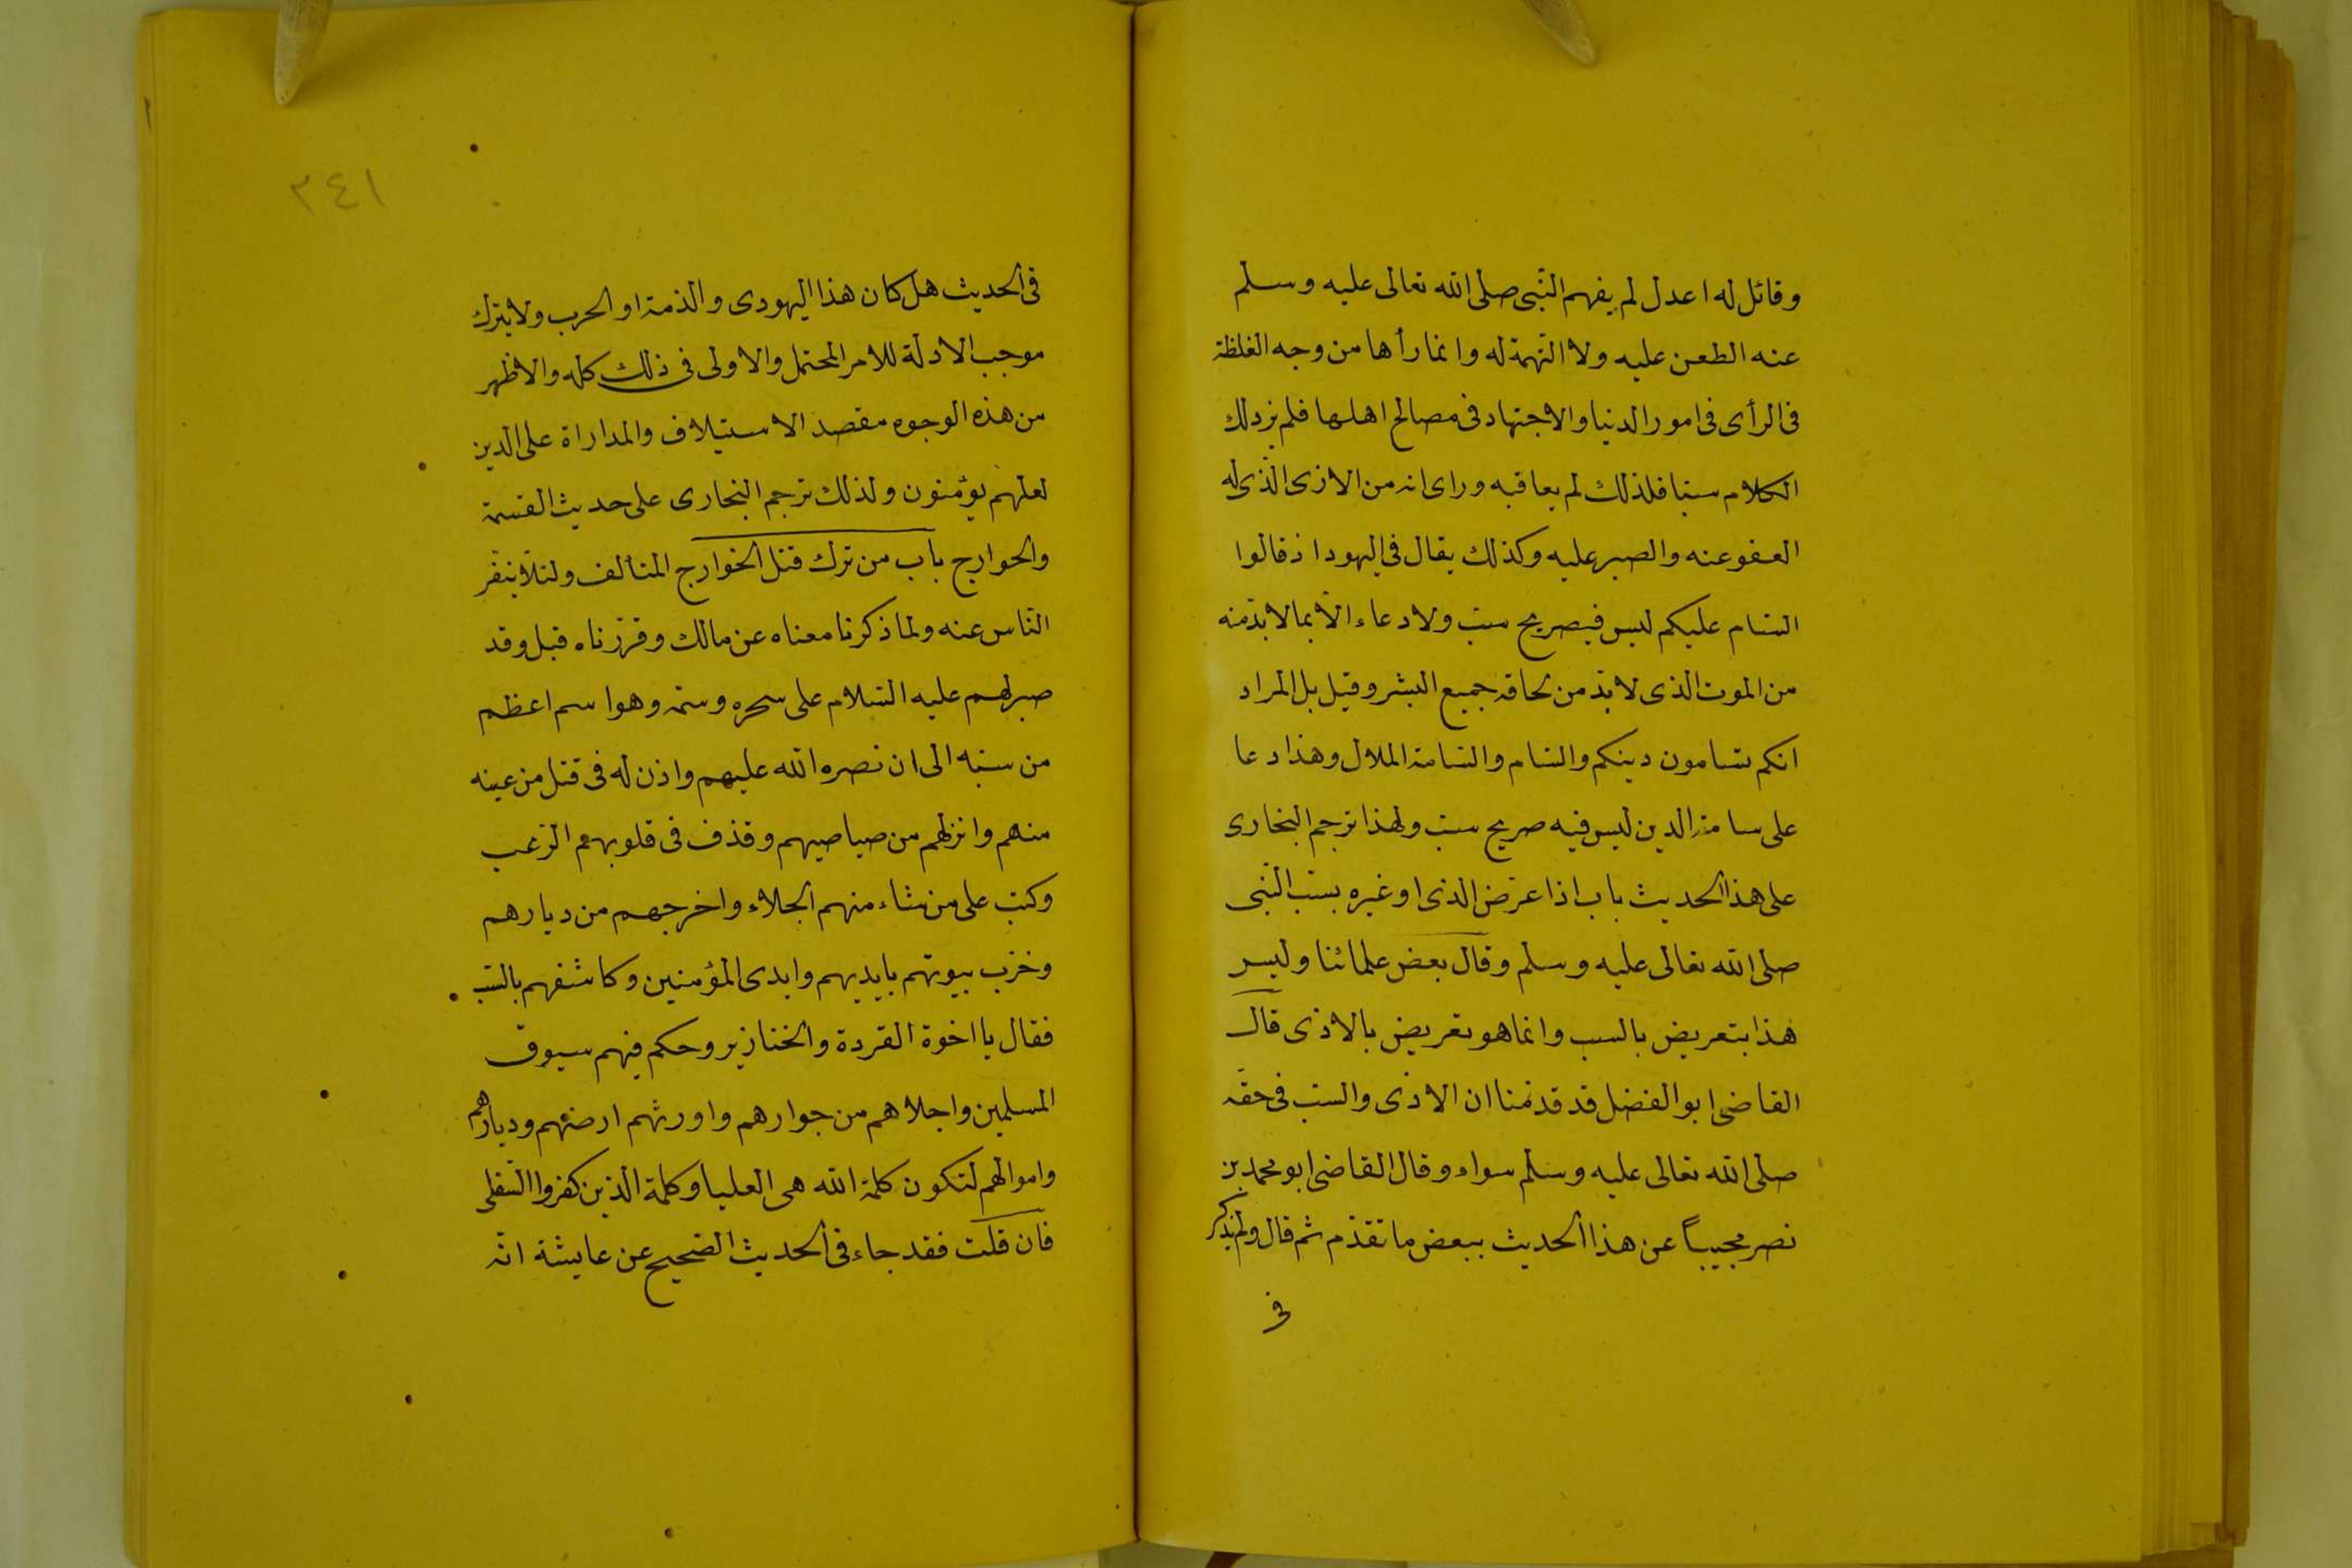 وقائل له اعدل لم يفهم النبى صلى الله تعالى عليه وسلم
عنه الطعن عليه ولا التهمة له وانما رأها من وجه الغلظة
فى الرأى فى امور الدنيا والاجتهاد فى مصالح اهلها فلم ير ذلك
الكلام سبا فلذلك لم يعاقبه وراى انه من الاذى الذى له
العفو عنه والصبر عليه وكذلك يقال فى اليهود اذ قالوا
السام عليكم ليس فيه صريح سب ولا دعاء الا بما لا بد منه
من الموت الذى لا بد من لحاقه جميع البشر وقيل بل المراد
انكم تسامون دينكم والسام والسامة الملال وهذا دعا
على سامة الدين ليس فيه صريح سب ولهذا ترجم البخارى
على هذا الحديث باب اذا عرّض الذمى او غيره بسبّ النّبى
صلى الله تعالى عليه وسلم وقال بعض علمائنا وليس
هذا بتعريض بالسب وانما هو تعريض بالاذى قال
القاضى ابو الفضل قد قدّمنا ان الاذى والسبّ فى حقّه
صلى الله تعالى عليه وسلم سواء وقال القاضى ابو محمد بن
نصر مجيباً عن هذا الحديث ببعض ما تقدّم ثم قال ولم يذكر
فى
٢٤١
فى الحديث هل كان هذا اليهودى والذمة او الحرب ولا يترك
موجب الادلة للامر المحتمل والاولى فى ذلك كله والاظهر
من هذه الوجوه مقصد الاستيلاف والمداراة على الدين
لعلهم يؤمنون ولذلك ترجم البخارى على حديث القسمة
والخوارج باب من ترك قتل الخوارج المتألف ولئلا ينفر
النّاس عنه ولما ذكرنا معناه عن مالك وقرّرناه قبل وقد
صبر لهم عليه السّلام على سحره وسمّه وهو اسم اعظم
من سبّه الى ان نصره الله عليهم واذن له فى قتل من عينه
منهم وانزلهم من صياصيهم وقذف فى قلوبهم الرّعب
وكتب على من شاء منهم الجلاء واخرجهم من ديارهم
وخرّب بيوتهم بايديهم وايدى المؤمنين وكاشفهم بالسّب
فقال يا اخوة القردة والخنازير وحكم فيهم سيوف
المسلمين واجلاهم من جوارهم واورثهم ارضهم وديارهم
واموالهم لتكون كلمة الله هى العليا وكلمة الذين كفروا السّفلى
فان قلت فقد جاء فى الحديث الصّحيح عن عايشة انّه